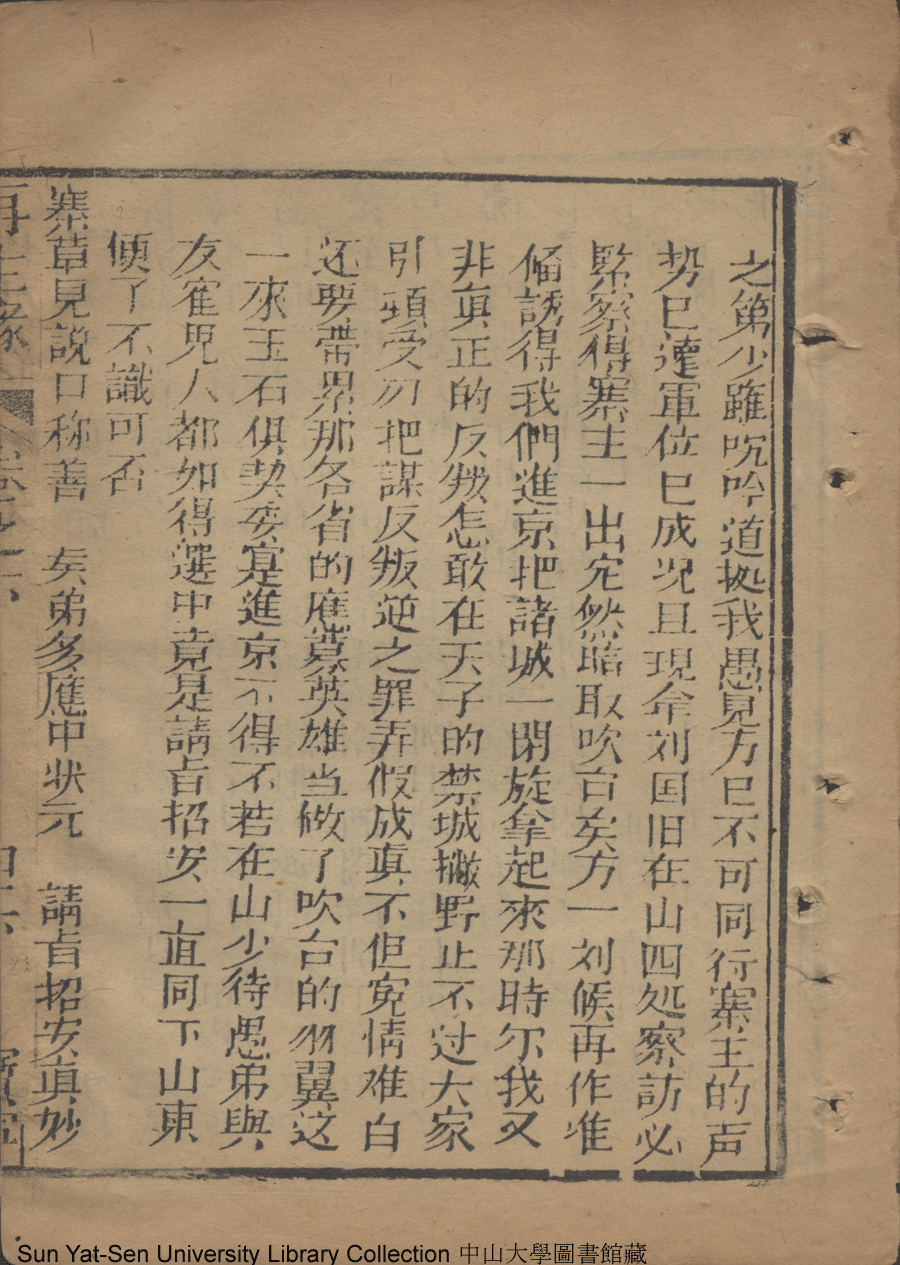 之第少雖吮吟道拠我愚見方巳不可同行寨主的声
势巳蓮軍位巳成况且現命刘国旧在山四処察訪必
緊察得寨主一出宛然暗取吹台矣方一刘候再作准
俻誘得我們進京把諸城一閉旋拿起來那時尔我又
非真正的反叛怎敢在天子的禁城撒野止不过大家
引頭受刀把謀反叛逆之罪弄假成真不但寃情难白
还要帶累那各省的應募英雄当做了吹台的羽翼这
一來玉石俱契委寔進京不得不若在山少待愚弟與
友寉児人都如得選中竟是請㫖招安一直同下山東
便了不識可否
寨草見説口称善　矣弟多應中状元　請㫖招安真妙
再生緣　卷之六
Sun Yat-Sen University Library Collection 中山大學圖書館藏